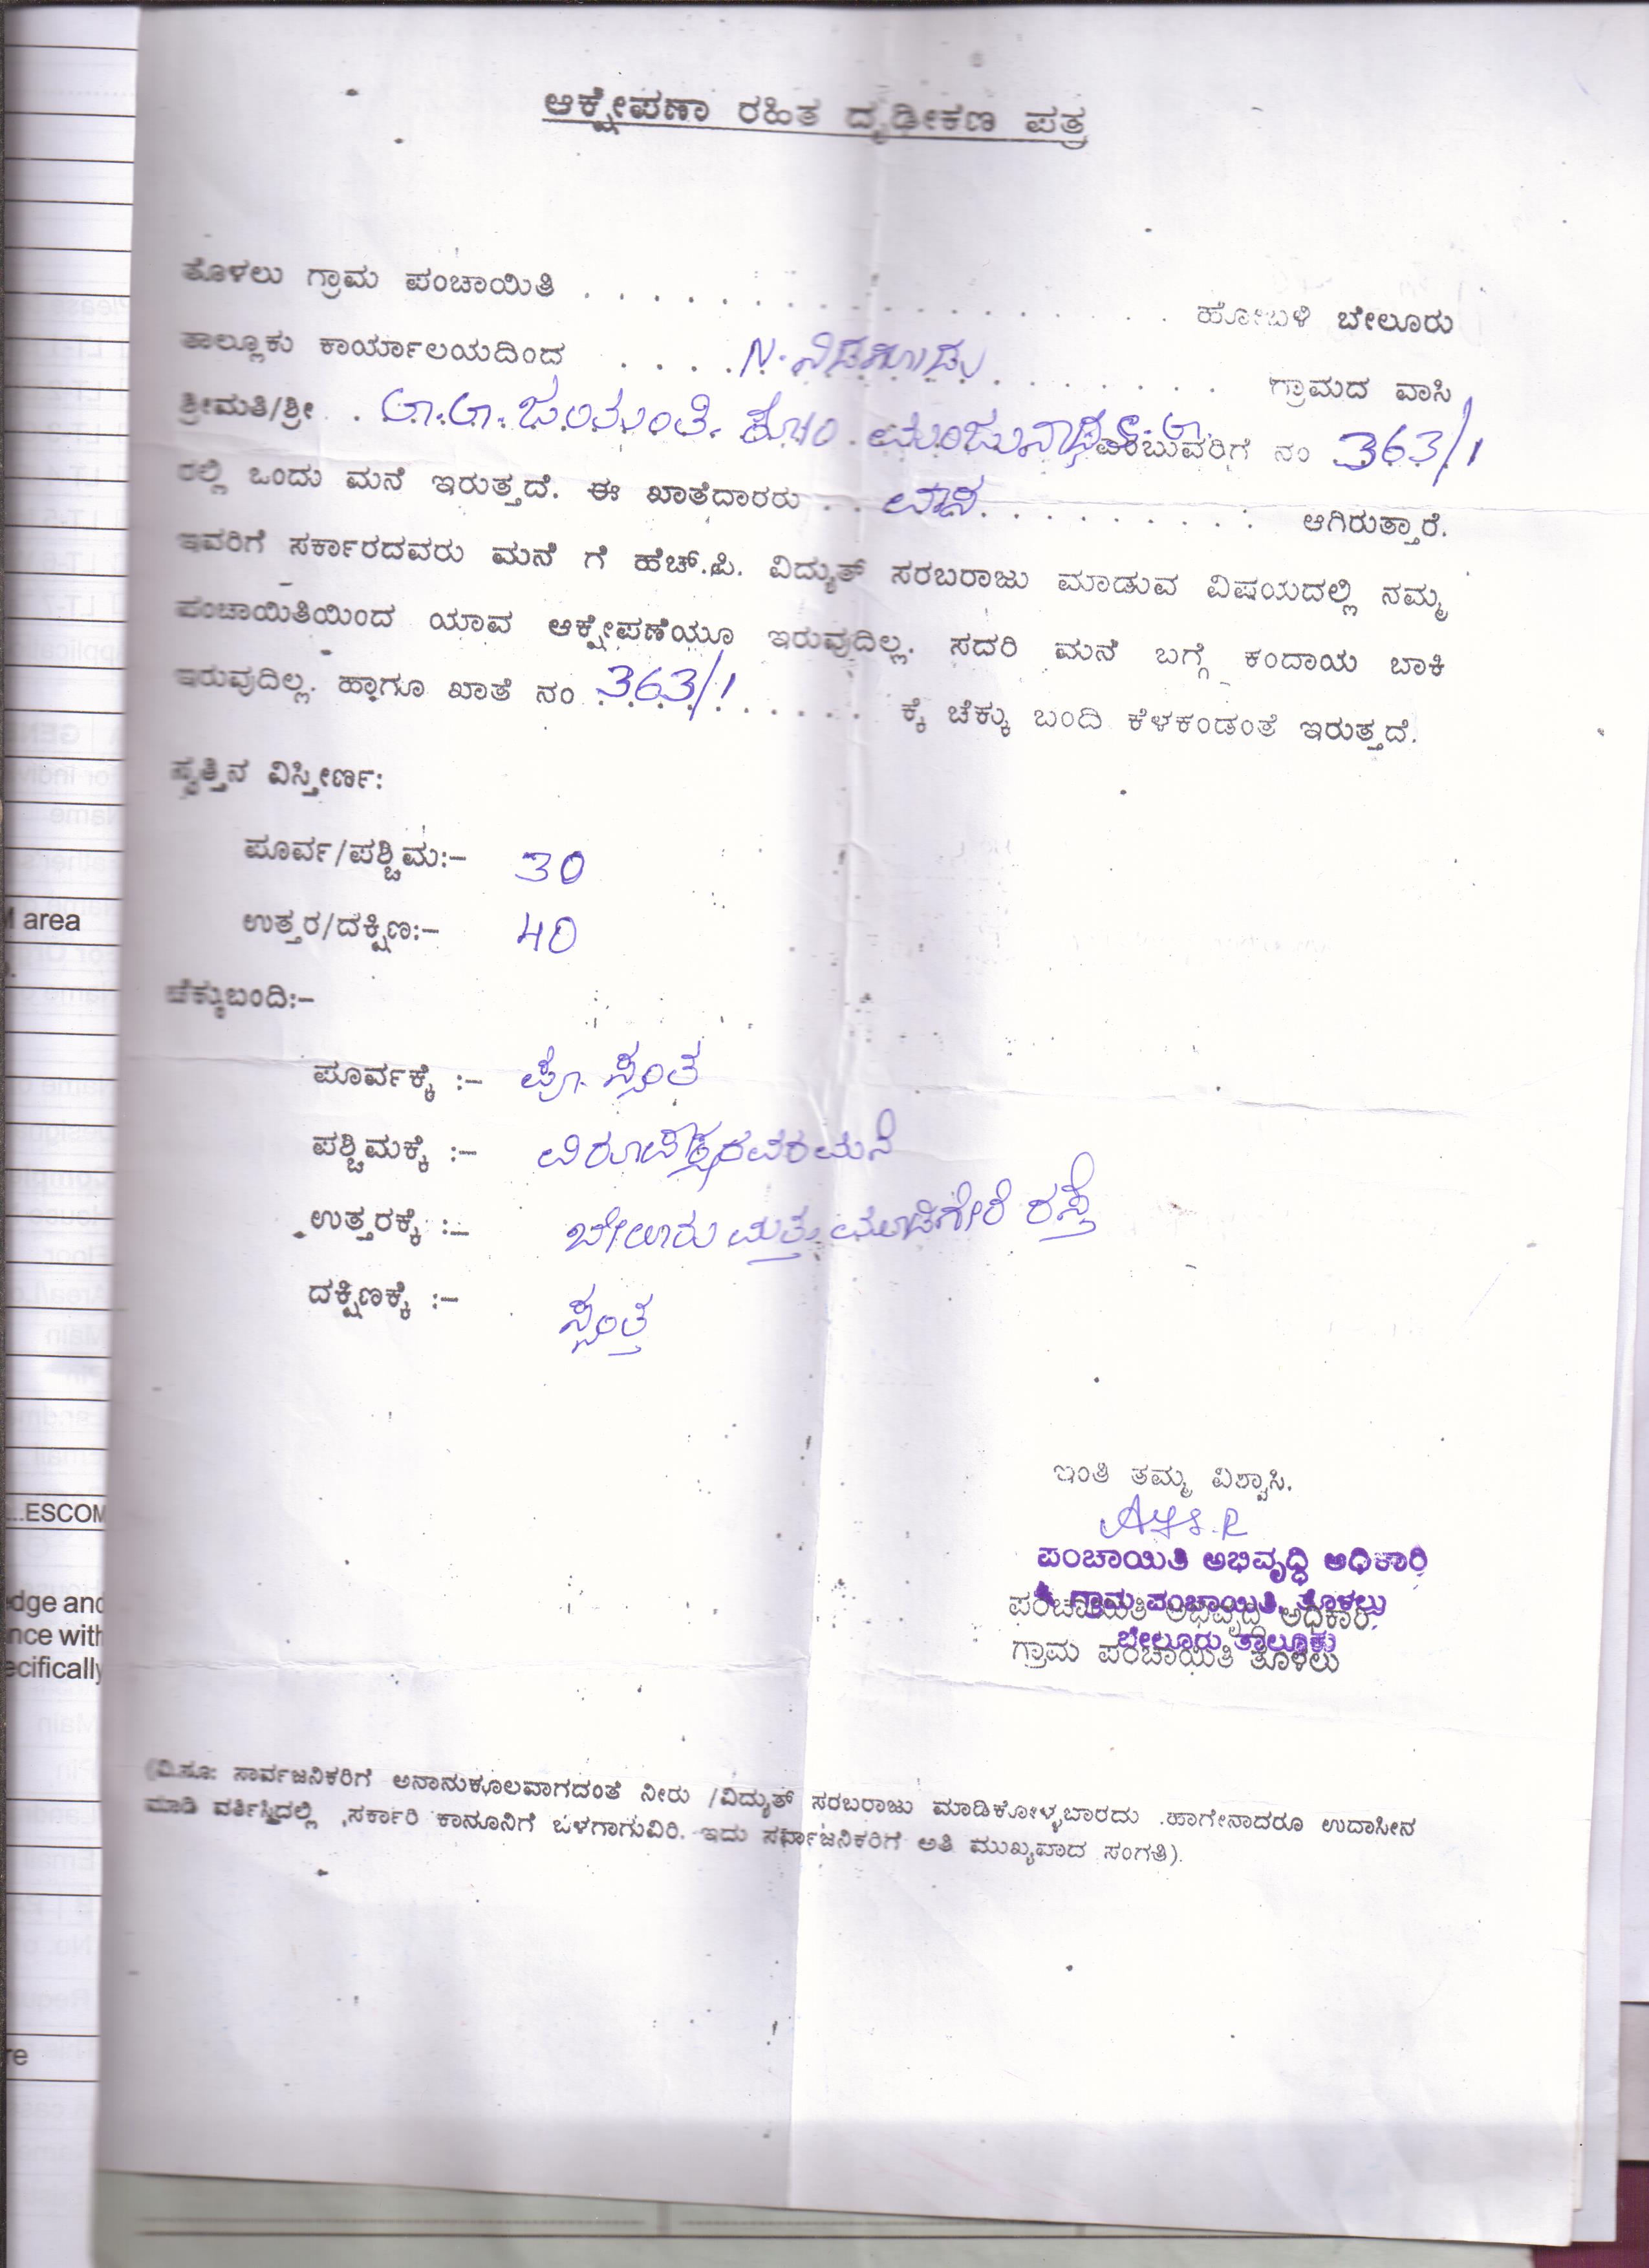 ಆಕ್ಷೇಪಣಾ ರಹಿತ ದೃಢೀಕಣ ಪತ್ರ
ತೊಳಲು ಗ್ರಾಮ ಪಂಚಾಯಿತಿ . . . . . . . . . . . . . . . . . ಹೋಬಳಿ ಬೇಲೂರು
ತಾಲ್ಲೂಕು ಕಾರ್ಯಾಲಯದಿಂದ . . . . N. ನಿಡಗೋಡು . . . . . . . ಗ್ರಾಮದ ವಾಸಿ
ಶ್ರೀಮತಿ/ಶ್ರೀ . ಜಯಂತಿ. ಕೋಂ. ಮಂಜುನಾಥ ಎಂಬುವರಿಗೆ ನಂ 363/1
ರಲ್ಲಿ ಒಂದು ಮನೆ ಇರುತ್ತದೆ. ಈ ಖಾತೆದಾರರು . . ವಾಸ . . . . . . . . . ಆಗಿರುತ್ತಾರೆ.
ಇವರಿಗೆ ಸರ್ಕಾರದವರು ಮನೆ ಗೆ ಹೆಚ್.ಪಿ. ವಿದ್ಯುತ್ ಸರಬರಾಜು ಮಾಡುವ ವಿಷಯದಲ್ಲಿ ನಮ್ಮ
ಪಂಚಾಯಿತಿಯಿಂದ ಯಾವ ಆಕ್ಷೇಪಣೆಯೂ ಇರುವುದಿಲ್ಲ. ಸದರಿ ಮನೆ ಬಗ್ಗೆ ಕಂದಾಯ ಬಾಕಿ
ಇರುವುದಿಲ್ಲ. ಹಾಗೂ ಖಾತೆ ನಂ 363/1 . . . . . ಕ್ಕೆ ಚೆಕ್ಕು ಬಂದಿ ಕೆಳಕಂಡಂತೆ ಇರುತ್ತದೆ.
ಸ್ವತ್ತಿನ ವಿಸ್ತೀರ್ಣ:
ಪೂರ್ವ/ಪಶ್ಚಿಮ:- 30
ಉತ್ತರ/ದಕ್ಷಿಣ:- 40
ಚೆಕ್ಕುಬಂದಿ:-
ಪೂರ್ವಕ್ಕೆ :- ಸ್ವಂತ
ಪಶ್ಚಿಮಕ್ಕೆ :- ವಿರೂಪಾಕ್ಷರವರ ಮನೆ
ಉತ್ತರಕ್ಕೆ :- ಬೇಲೂರು ಮತ್ತು ಮೂಡಿಗೇರೆ ರಸ್ತೆ
ದಕ್ಷಿಣಕ್ಕೆ :- ಸ್ವಂತ
ಇಂತಿ ತಮ್ಮ ವಿಶ್ವಾಸಿ.
ಪಂಚಾಯಿತಿ ಅಭಿವೃದ್ಧಿ ಅಧಿಕಾರಿ
ಗ್ರಾಮ ಪಂಚಾಯಿತಿ, ತೊಳಲು
ಪಂಚಾಯಿತಿ ಅಭಿವೃದ್ಧಿ ಅಧಿಕಾರಿ.
ಬೇಲೂರು ತಾಲ್ಲೂಕು
ಗ್ರಾಮ ಪಂಚಾಯಿತಿ ತೊಳಲು
(ವಿ.ಸೂ: ಸಾರ್ವಜನಿಕರಿಗೆ ಅನಾನುಕೂಲವಾಗದಂತೆ ನೀರು /ವಿದ್ಯುತ್ ಸರಬರಾಜು ಮಾಡಿಕೋಳ್ಳಬಾರದು .ಹಾಗೇನಾದರೂ ಉದಾಸೀನ
ಮಾಡಿ ವರ್ತಿಸ್ತಿದಲ್ಲಿ ,ಸರ್ಕಾರಿ ಕಾನೂನಿಗೆ ಒಳಗಾಗುವಿರಿ. ಇದು ಸರ್ವಾಜನಿಕರಿಗೆ ಅತಿ ಮುಖ್ಯವಾದ ಸಂಗತಿ).
area
...ESCOM